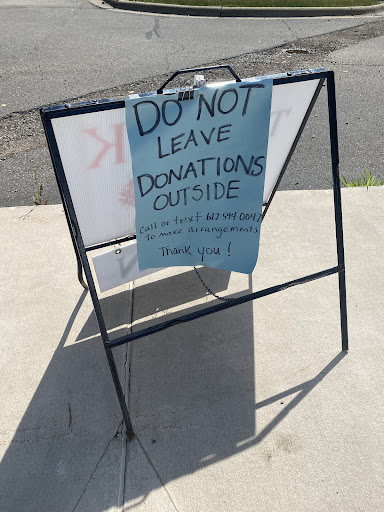 DO NOT
LEAVE
DONATIONS
OUTSIDE
Call or text 612 594 0047
to make arrangements
Thank you!